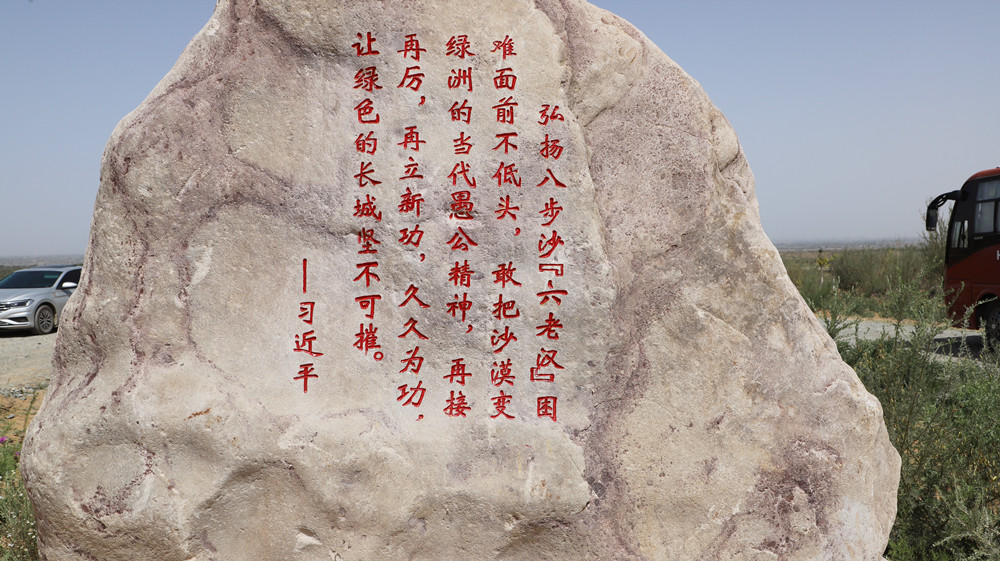 弘扬八步沙『六老汉』困
难面前不低头，敢把沙漠变
绿洲的当代愚公精神，再接
再厉，再立新功，久久为功，
让绿色的长城坚不可摧。
—习近平